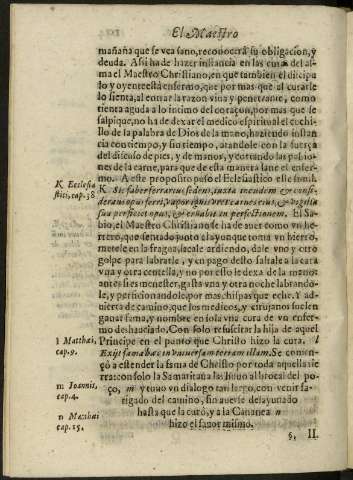 El Maestro
mañana que se vea sano, reconocera su obligacion, y
deuda. Assi ha de hazer instancia en las curas del al-
ma el Maestro Christiano, en que tambien el discipu
lo y oyente està enfermo, que por mas que al curarle
lo sienta, al entrar la razon viua y penetrante, como
tienta aguda a lo intimo del coraçon, por mas que se
salpique, no ha de dexar el medico espiritual el cuchi-
llo de la palabra de Dios de la mano, haziendo instan
cia con tiempo, y sin tiempo, atandole con la fuerça
del discurso de pies, y de manos, y cortando las passio-
nes de la carne, para que de esta manera sane el enfer-
mo. A este proposito puso el Eclesiastico este simil.
K Ecclesia
stici, cap. 38
K Sic faber ferrarius sedens iuxta incudem & consi-
derans opus ferri, vapor ignis vret carnes eius, & vigilia
sua perficiet opus, & ornabit in perfectionem. El Sa-
bio, el Maestro Christiano se ha de auer como vn he-
rrero, que sentado junto al ayunque toma vn hierro,
metele en la fragoa, sacale ardiendo, dale vno y otro
golpe para labrarle, y en pago desto saltale a la cara
vna y otra centella, y no por esso le dexa de la mano,
antes si es menester, gasta vna y otra noche labrando-
le, y perficionandole, por mas chispas que eche. Y ad-
uierta de camino, que los medicos, y cirujanos suelen
ganar fama, y nombre en sola vna cura de vn enfer-
mo deshauciado. Con solo resuscitar la hija de aquel
l Matthæi,
cap. 9.
Principe en el punto que Christo hizo la cura. l
Exijt fama hæc in vniuersam terram illam. Se comen-
çò a estender la fama de Christo por toda aquella tie
rra: con solo la Samaritana las huuo al brocal del po-
m Joannis,
cap. 4.
ço, m y tuuo vn dialogo tan largo, con venir fa-
tigado del camino, sin auerse desayunado
n Matthæi
cap. 15.
hasta que la curò, y a la Cananea n
hizo el fauor mismo.
§. II.